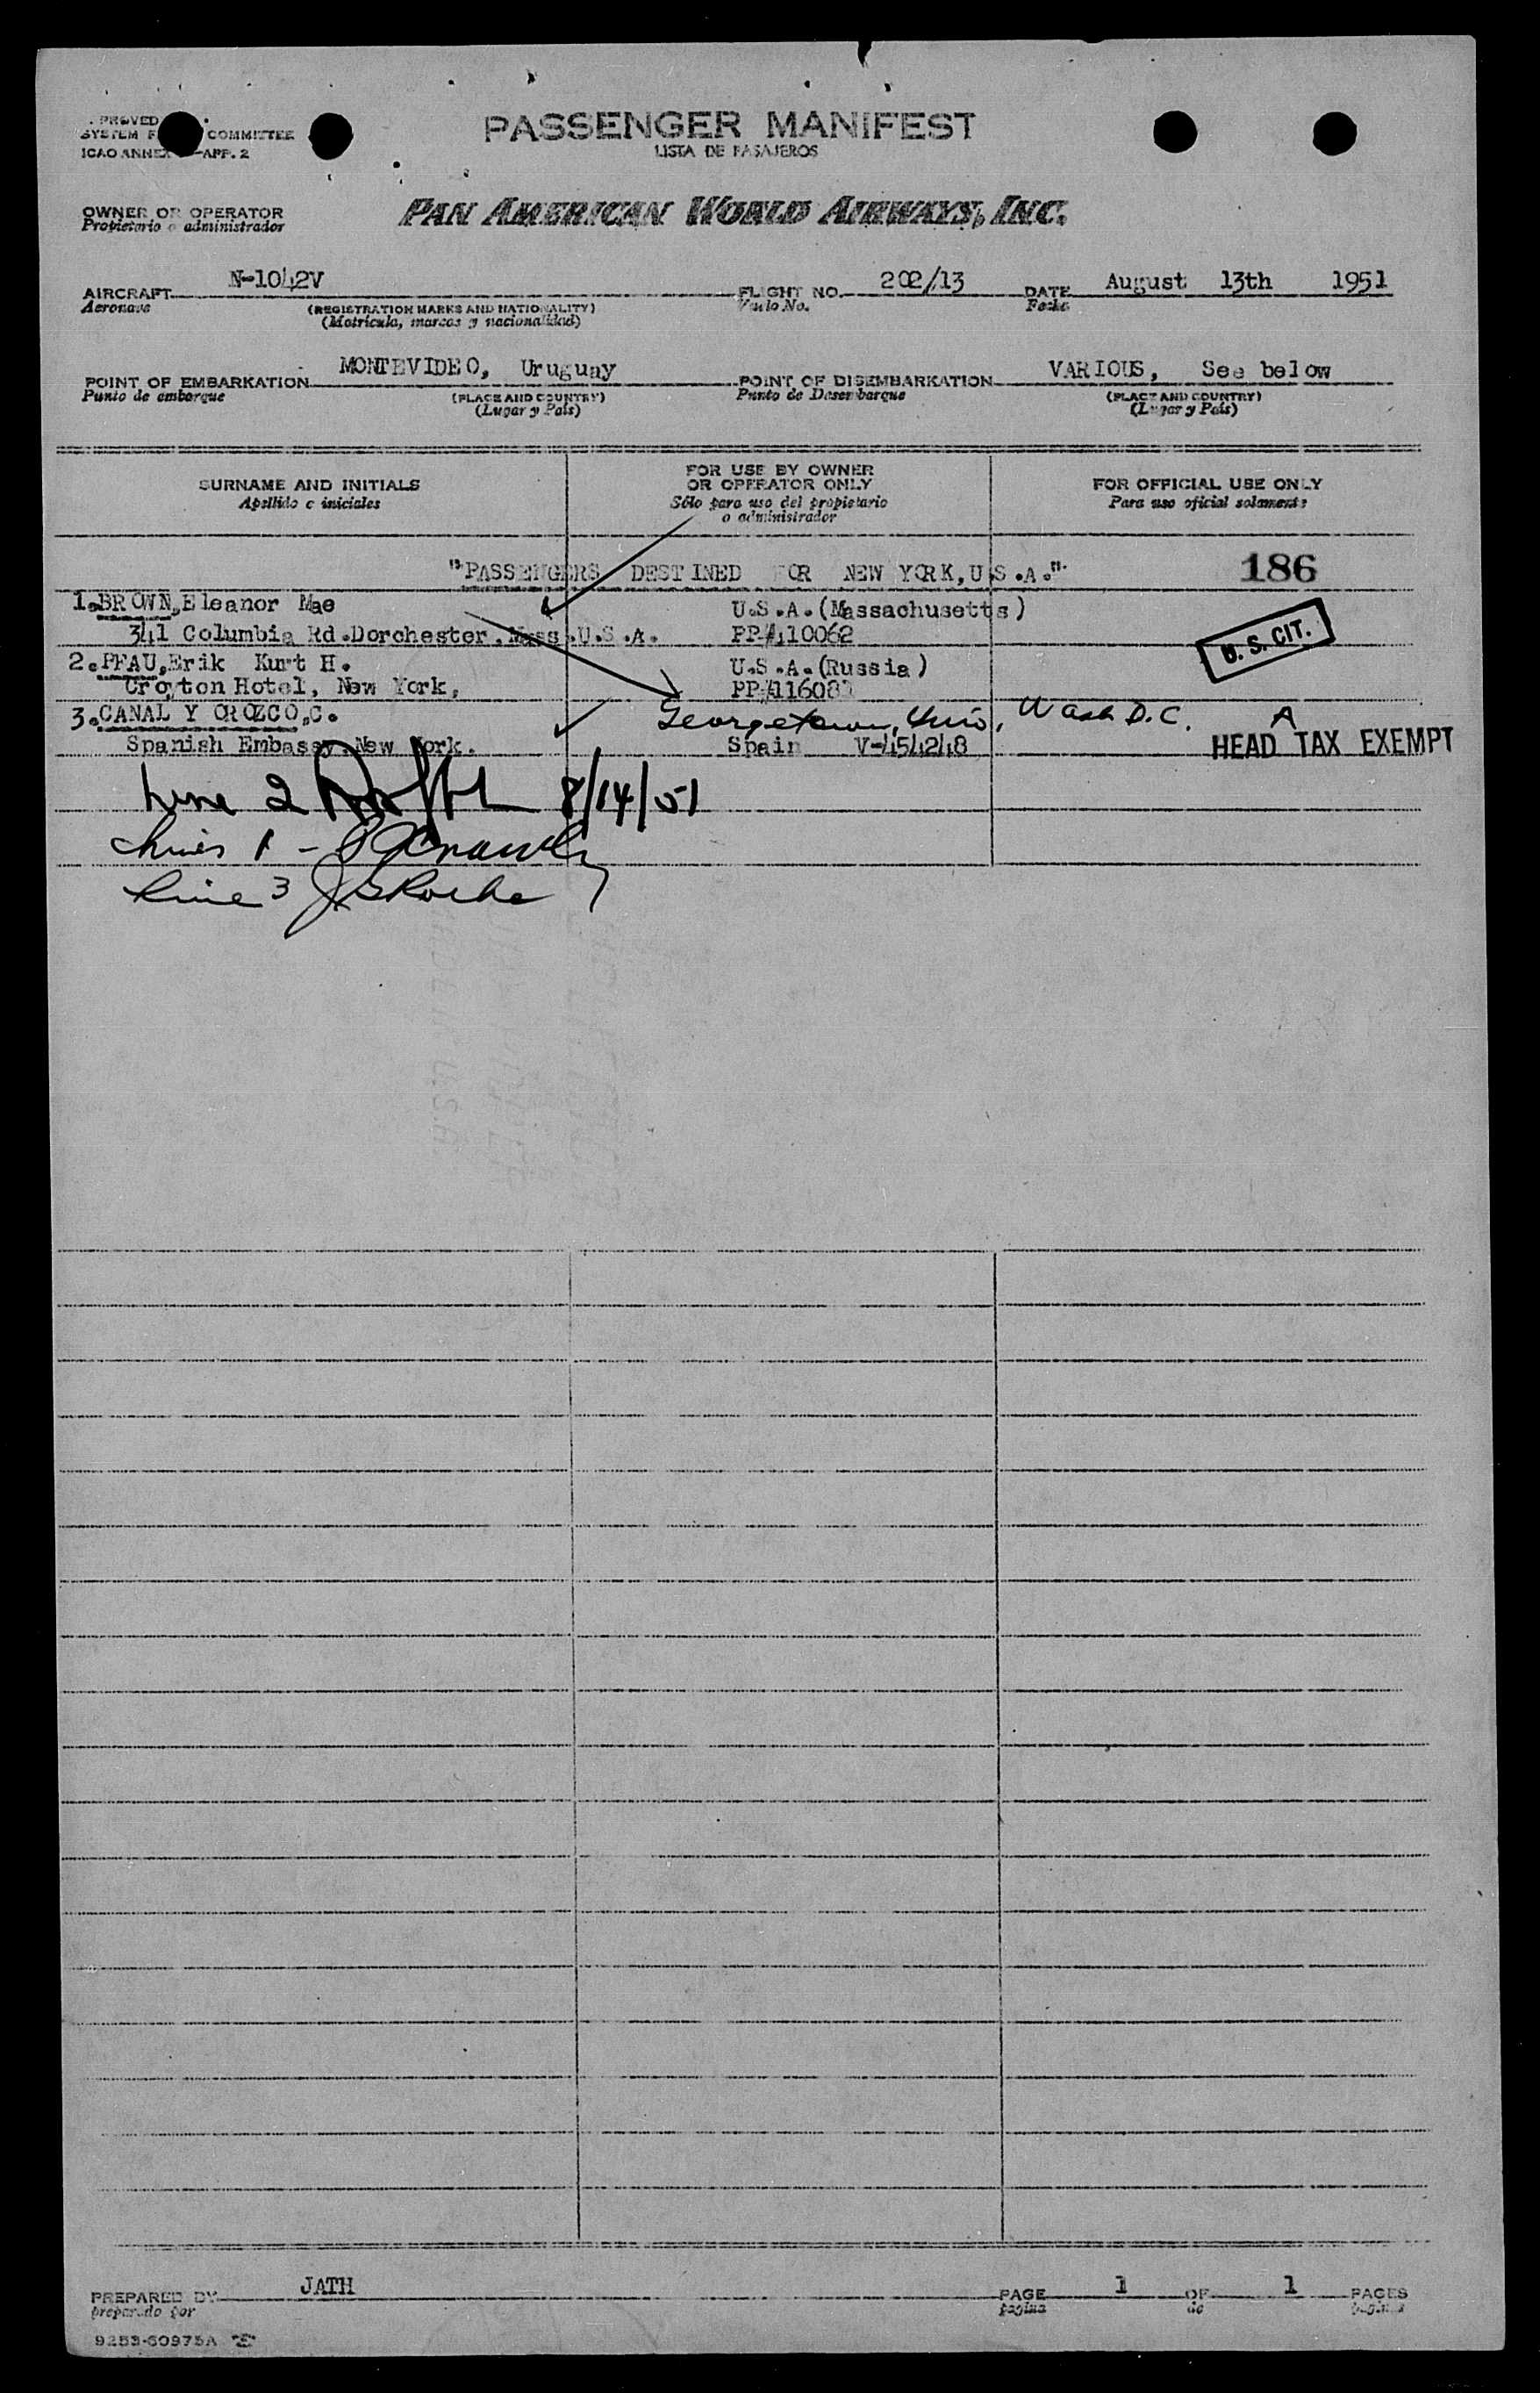 PASSENGER MANIFEST
LISTA DE PASAJEROS
COMMITTEE
ICAO ANNEX APP. 2
OWNER OR OPERATOR
Propietario o administrador
PAN AMERICAN WORLD AIRWAYS, INC.
AIRCRAFT N-1042V FLIGHT NO. 202/13 DATE August 13th 1951
Aeronave (REGISTRATION MARKS AND NATIONALITY) Vuelo No. Fecha
(Matricula, marcas y nacionalidad)
POINT OF EMBARKATION MONTEVIDEO, Uruguay POINT OF DISEMBARKATION VARIOUS, See below
Punto de embarque (PLACE AND COUNTRY) Punto de Desembarque (PLACE AND COUNTRY)
(Lugar y País) (Lugar y País)
SURNAME AND INITIALS FOR USE BY OWNER OR OPERATOR ONLY FOR OFFICIAL USE ONLY
Apellido e iniciales Sólo para uso del propietario o administrador Para uso oficial solamente
"PASSENGERS DESTINED FOR NEW YORK, U.S.A." 186
1. BROWN, Eleanor Mae U.S.A. (Massachusetts)
341 Columbia Rd. Dorchester. Mass. U.S.A. PP# 410062 U. S. CIT.
2. PFAU, Erik Kurt H. U.S.A. (Russia)
Croyton Hotel, New York,
3. CANAL Y OROZCO, C. Georgetown Univ, Wash D.C. A
Spanish Embassy New York. Spain V-454248 HEAD TAX EXEMPT
Line 2 8/14/51
Lines 1 -
Line 3
PREPARED BY JATH PAGE 1 OF 1 PAGES
preparado por pagina de
9253-60975A "E"